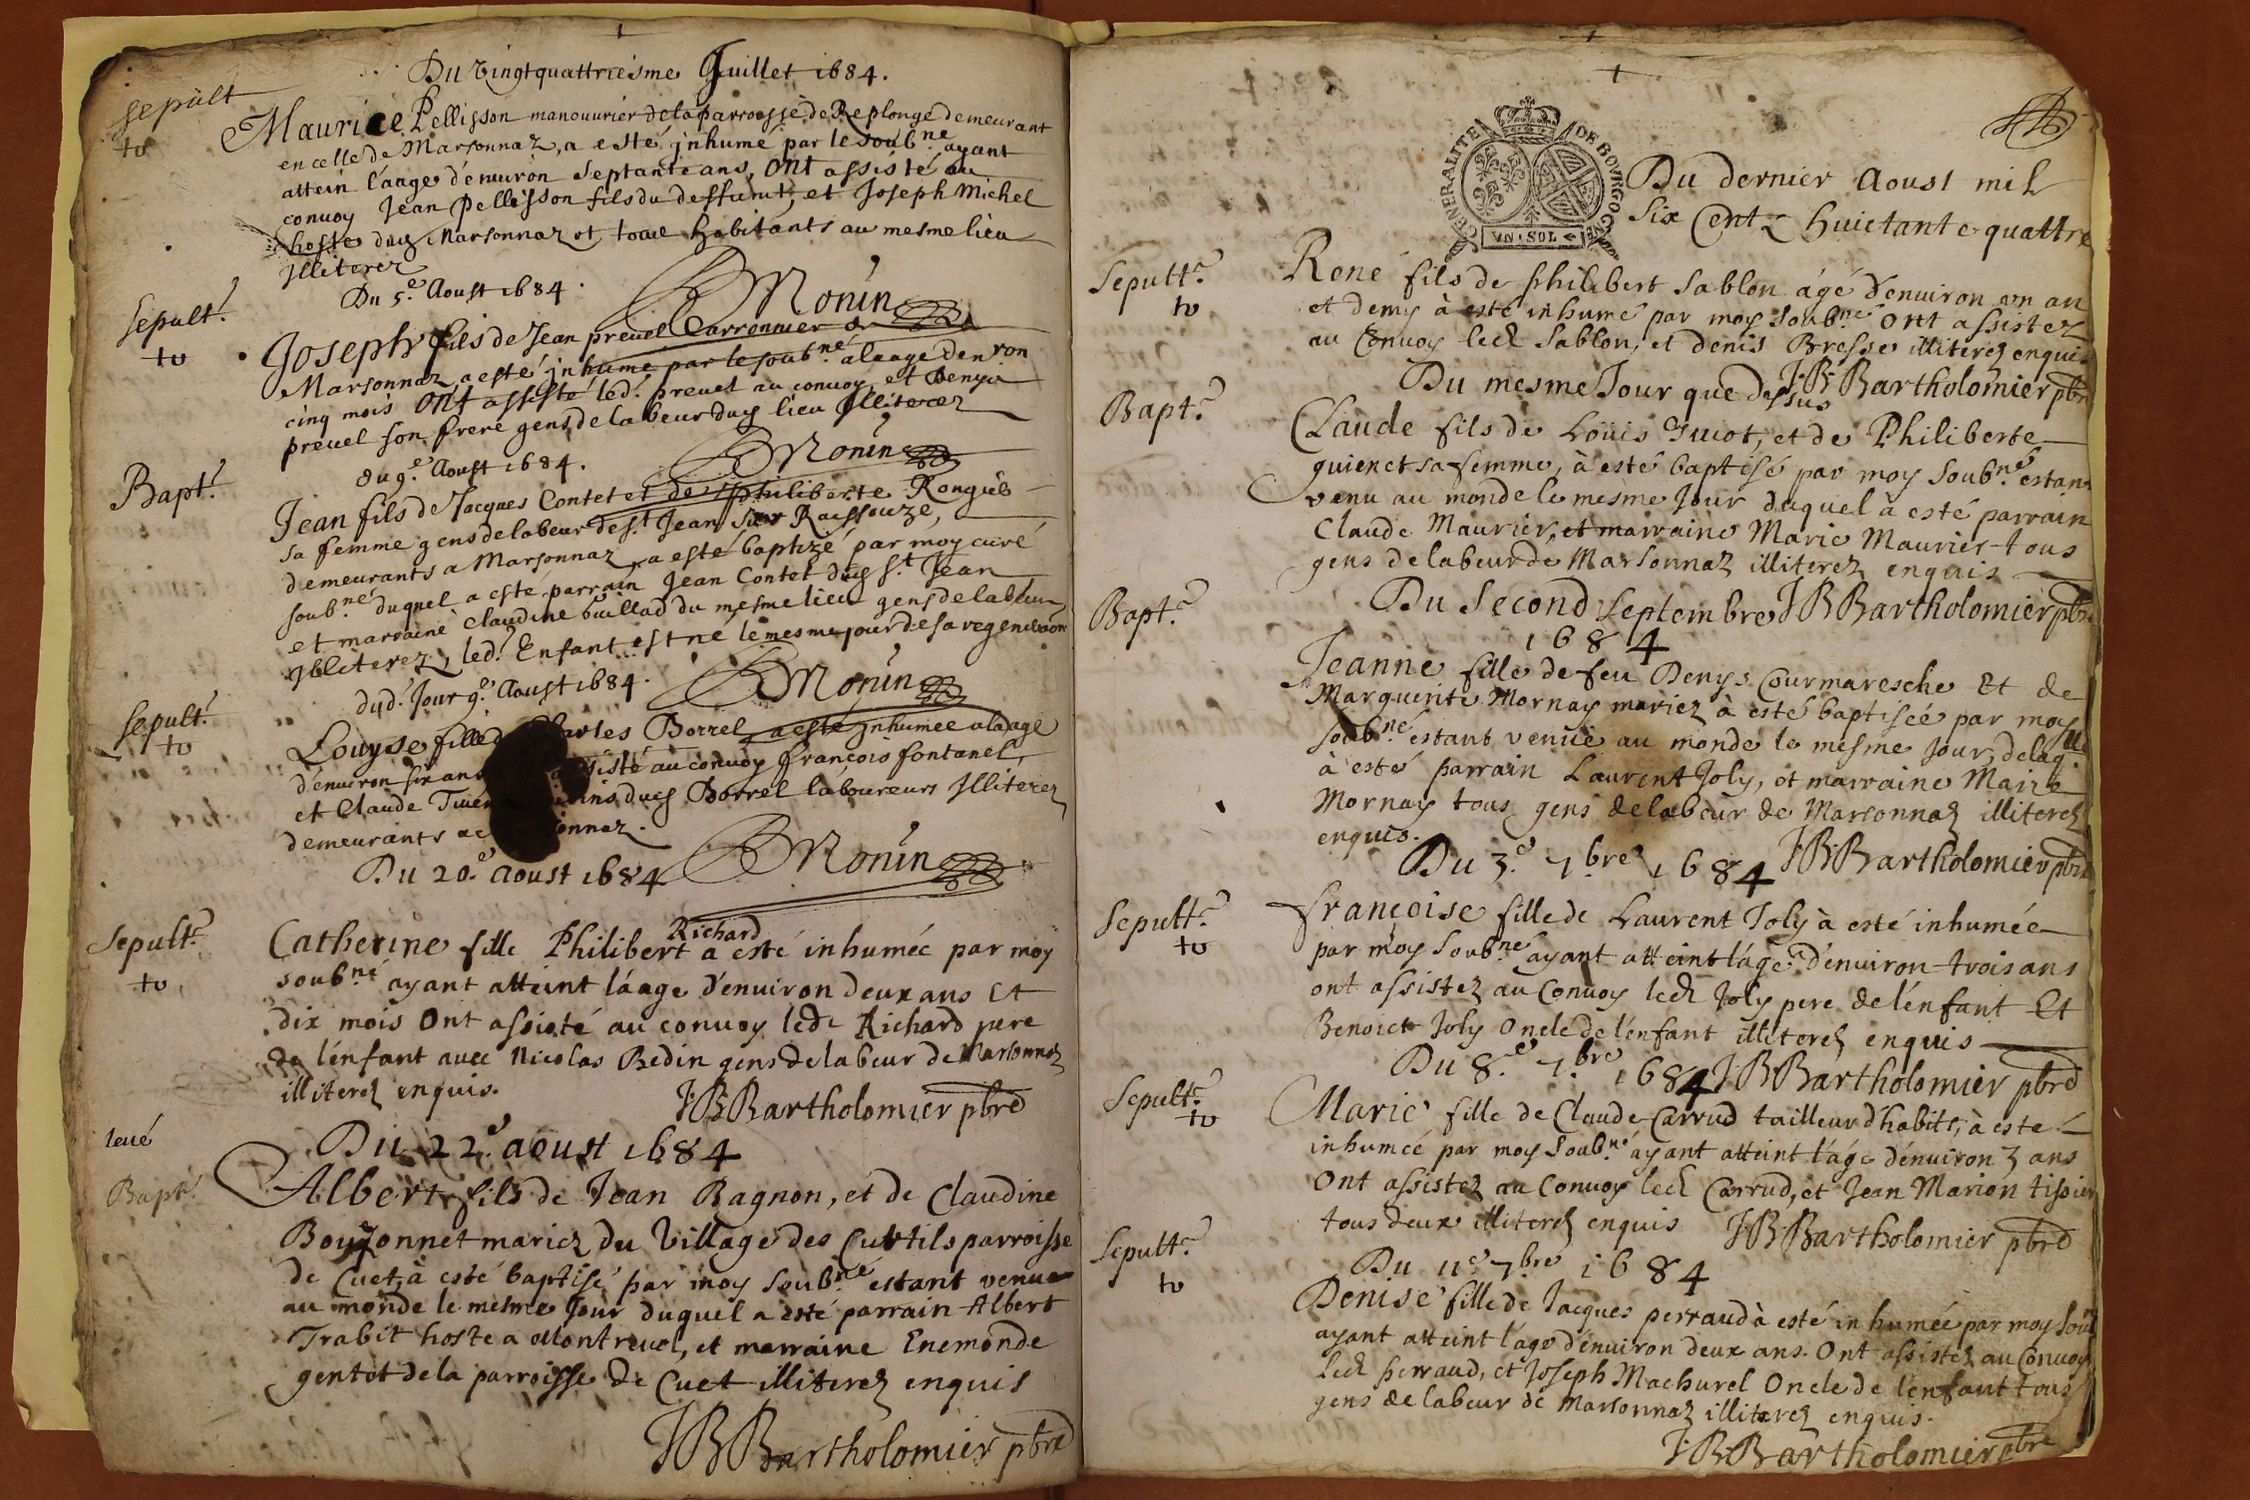 Du vingtquattriesme Juillet 1684.
sepult
to
Maurice Pellisson manouurier de la parroesse de Replonge demeurant
en celle de Marsonnaz, a esté jnhumé par le soub.né ayant
attein l'aage d'enuiron septante ans, ont assisté au
conuoy Jean Pellisson fils du deffunt, et Joseph Michel
hoste dud Marsonnaz et tous habitants au mesme lieu
Jlliterez
Du 5.e Aoust 1684.
Monin
Sepult.e
to
Joseph fils de Jean preuel Carronnier de
Marsonnaz a esté jnhumé par le soub.né a l'aage den.ron
cinq mois ont assisté led. preuel au conuoy, et Denys
preuel son frere gens de labeur duy lieu Jlliterez
du 9.e Aoust 1684.
Monin
Bapt.e
Jean fils de Jacques Contet et de philiberte Rongie
sa femme gens de labeur de s.t Jean sur Raissouze,
demeurants a Marsonnaz, a esté baptizé par moy curé
soub.né duquel a esté parrain Jean Contet duy s.t Jean
et marraine claudine buillad du mesme lieu gens de labeur
Jlliterez, led. Enfant est né le mesme jour de sa regeneration
dud. Jour 9.e Aoust 1684.
Monin
sepult.e
to
Louyse fille de Charles Borrel, a esté jnhumee a l'aage
d'enuiron six ans assisté au conuoy françois fontanel,
et Claude ins duy Borrel laboureurs Jlliterez
demeurants a onnaz.
Monin
Du 20.e aoust 1684
Sepult.e
to
Richard
Catherine fille Philibert a esté inhumée par moy
soub.né ayant atteint l'aage d'enuiron deux ans Et
dix mois Ont assisté au conuoy led. Richard pere
de l'enfant auec Nicolas Bedin gens de labeur de Marsonnaz
illiterez enquis.
J. B. Bartholomier pbre
leué
Du 22.e aoust 1684
Bapt.e
Albert fils de Jean Bagnon, et de Claudine
Bouzonnet mariez du Village des Curtils parroisse
de Cuet, à esté baptisé par moy soub.né estant venu
au monde le mesme Jour duquel a esté parrain Albert
Trabit hoste a Montreuel, et marraine Enemonde
gentet de la parroisse de Cuet illiterez enquis
J. B. Bartholomier pbre
GENERALITE DE BOVRGOGNE
VN SOL
Du dernier Aoust mil
Six Centz huictante quattre
Sepult.e
to
René fils de philibert Sablon âgé d'enuiron vn an
et demy à esté inhumé par moy soub.né Ont assistez
au Conuoy led. Sablon, et Denis Bresse illiterez enquis
J. B. Bartholomier pbre
Du mesme Jour que dessus
Bapt.e
Claude fils de Loüis Juiot, et de Philiberte
guienet sa femme, à esté baptisé par moy soub.né estant
venu au monde le mesme Jour duquel à esté parrain
Claude Maurier, et marraine Marie Maurier tous
gens de labeur de Marsonnaz illiterez enquis
J B Bartholomier pbre
Bapt.e
Du Second Septembre
1684
Jeanne fille de feu Denys Courmaresche Et de
Marguerite Mornay mariez à esté baptisée par moy
soub.né estant venüe au monde le mesme Jour, de laq.lle
à esté parrain Laurent Joly, et marraine Marie
Mornay tous gens de labeur de Marsonnaz illiterez
enquis.
J. B. Bartholomier pbre
Du 3.e 7.bre 1684
Sepult.e
to
Françoise fille de Laurent Joly à esté inhumée
par moy soub.né ayant atteint l'âge d'enuiron trois ans
ont assistez au Conuoy led. Joly pere de l'enfant Et
Benoict Joly Oncle de l'enfant illiterez enquis
J. B. Bartholomier pbre
Du 8.e 7.bre 1684
Sepult.e
to
Marie fille de Claude Carrud tailleur d'habits, à esté
inhumée par moy soub.né ayant atteint l'âge d'enuiron 3 ans
Ont assistez au Conuoy led. Carrud, et Jean Marion tissier
tous deux illiterez enquis
J. B. Bartholomier pbre
Du 11.e 7.bre 1684
Sepult.e
to
Denise fille de Jacques perraud à esté inhumée par moy sou
ayant atteint l'age d'enuiron deux ans. Ont assistez au Conuoy
led. perraud, et Joseph Machurel Oncle de l'enfant tous
gens de labeur de Marsonnaz illiterez enquis.
J. B. Bartholomier pbre